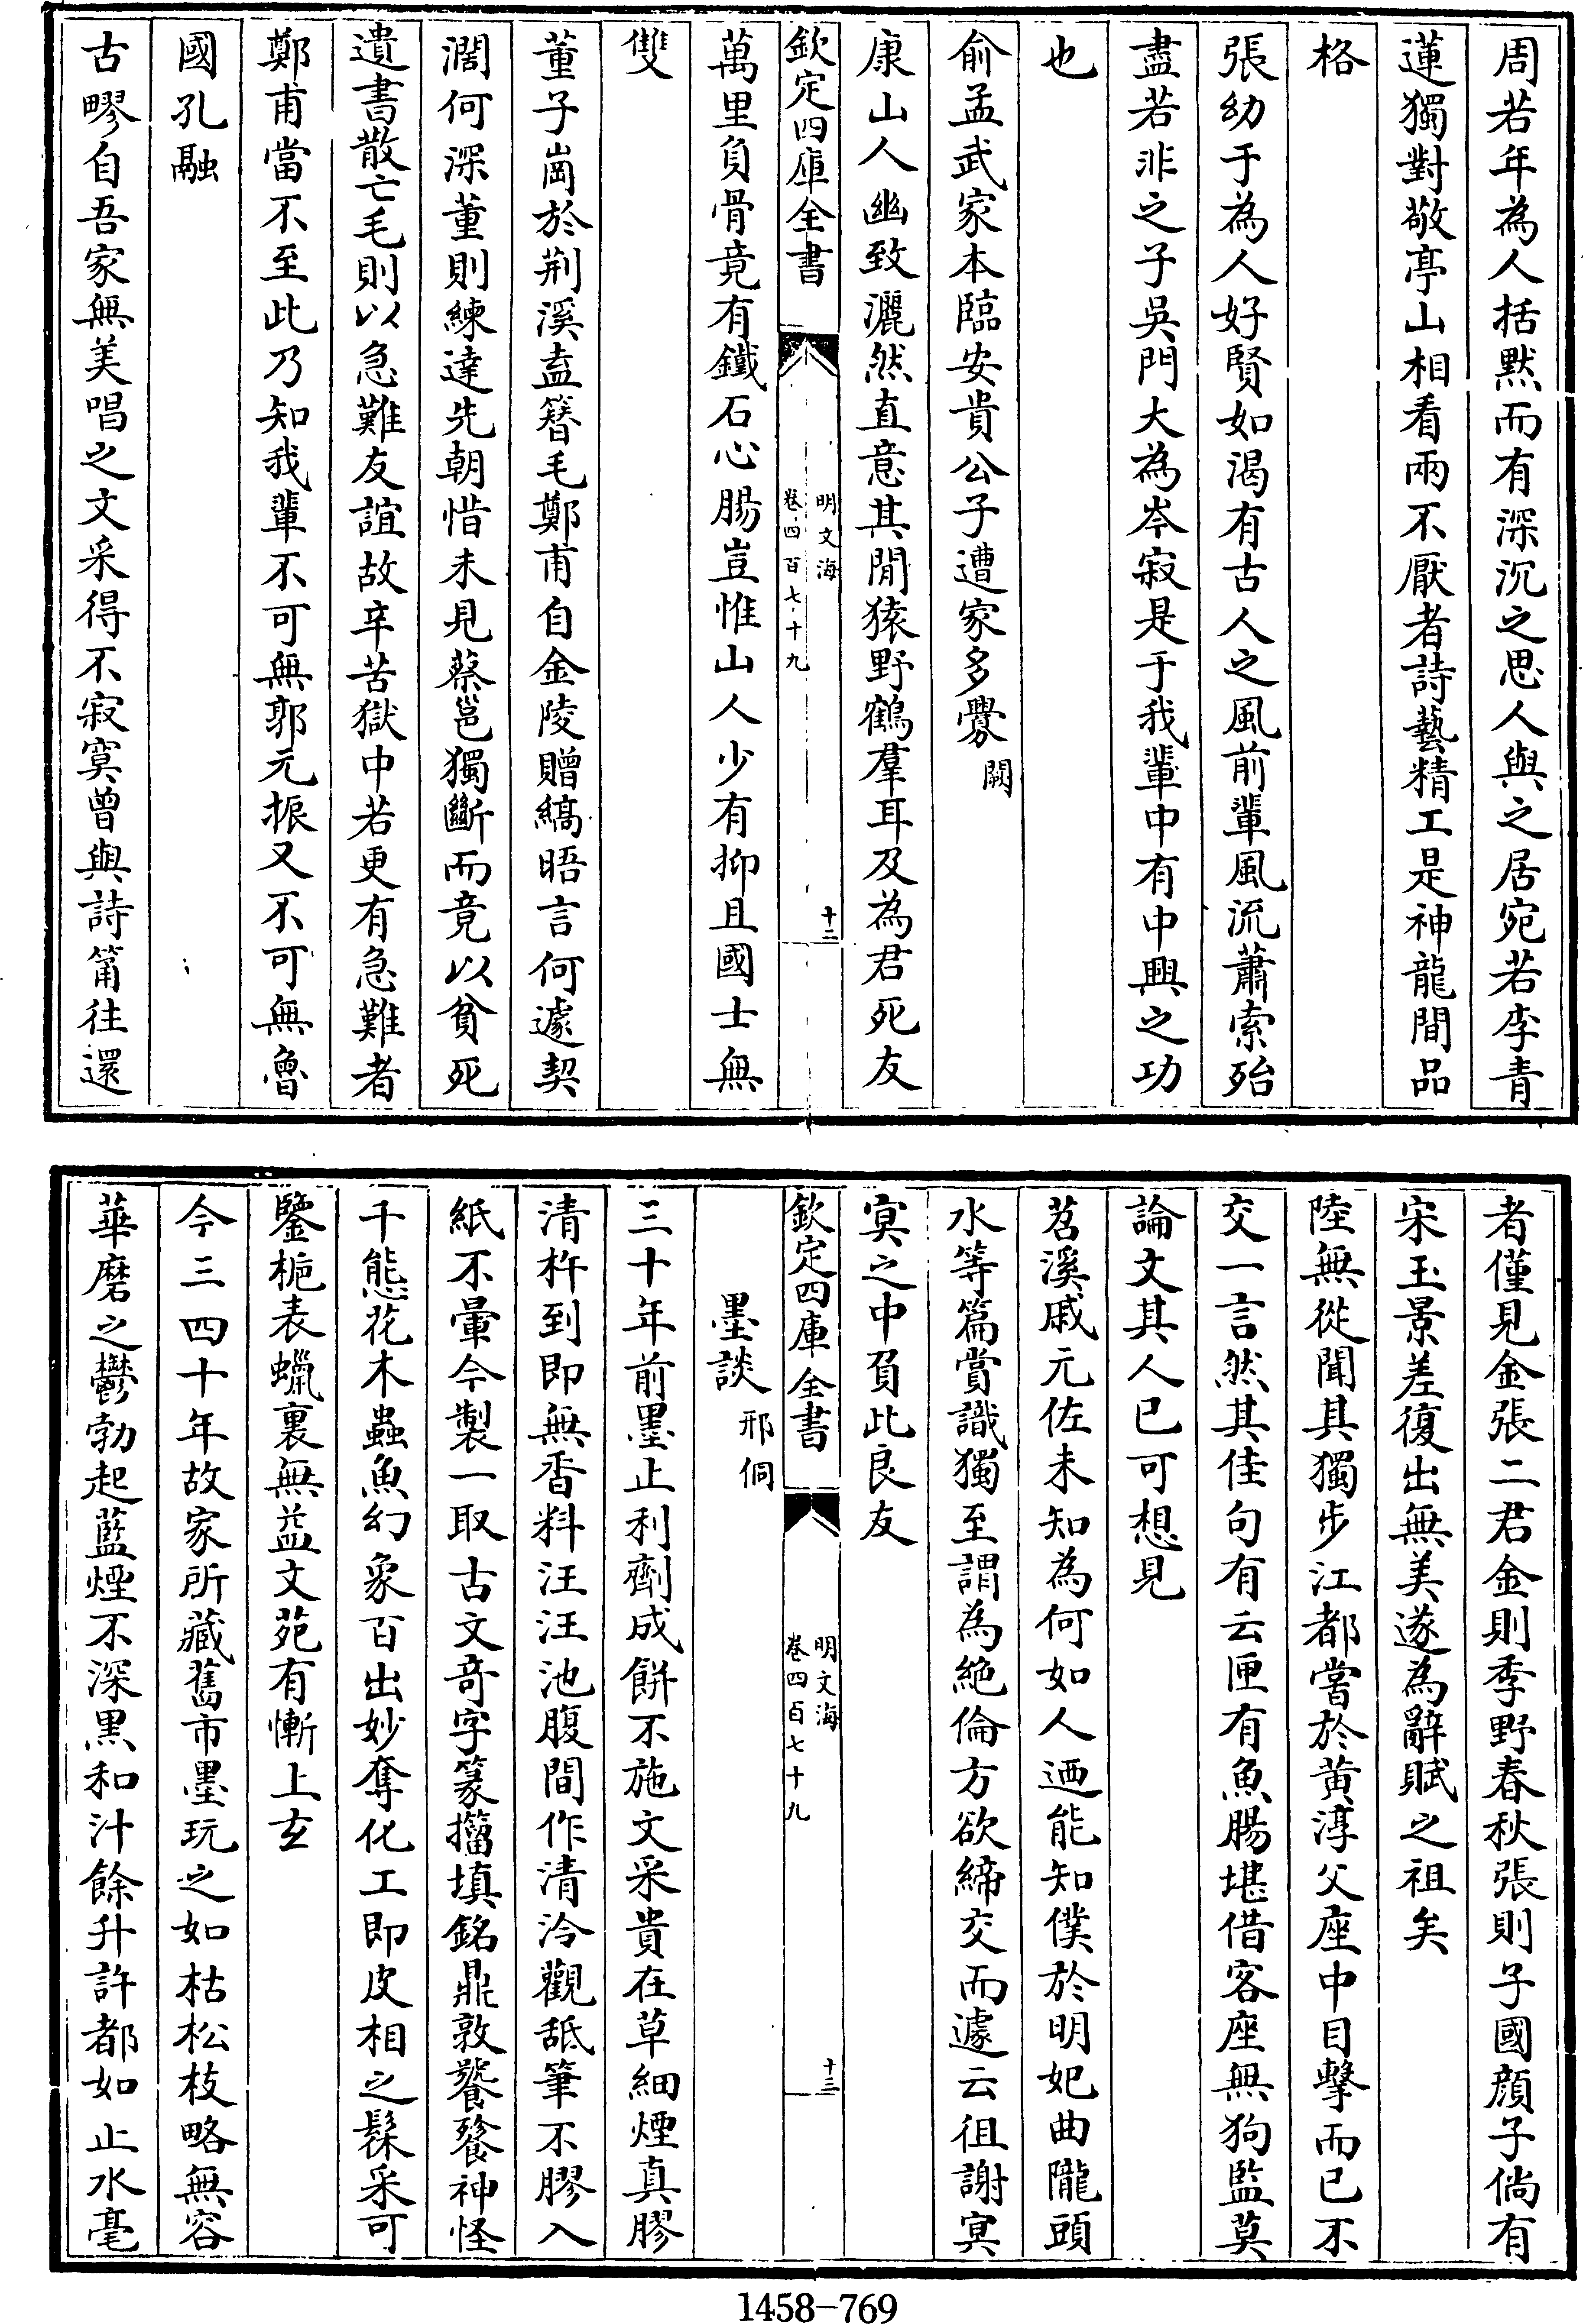 周若年為人括默而有深沉之思人與之居宛若李青
蓮獨對敬亭山相看兩不厭者詩藝精工是神龍間品
格
張幼于為人好賢如渴有古人之風前輩風流蕭索殆
盡若非之子吳門大為岑寂是于我輩中有中興之功
也
俞孟武家本臨安貴公子遭家多釁闕
康山人幽致灑然直意其閒猿野鶴羣耳及為君死友
欽定四庫全書
明文海
卷四百七十九
十二
萬里負骨竟有鐵石心腸豈惟山人少有抑且國士無
雙
董子崗於荆溪盍簪毛鄭甫自金陵贈縞晤言何遽契
濶何深董則練達先朝惜未見蔡邕獨斷而竟以貧死
遺書散亡毛則以急難友誼故辛苦獄中若更有急難者
鄭甫當不至此乃知我輩不可無郭元振又不可無魯
國孔融
古疁自吾家無美唱之文采得不寂寞曾與詩筩往還
者僅見金張二君金則季野春秋張則子國顔子倘有
宋玉景差復出無美遂為辭賦之祖矣
陸無從聞其獨步江都嘗於黄淳父座中目擊而已不
交一言然其佳句有云匣有魚腸堪借客座無狗監莫
論文其人已可想見
苕溪戚元佐未知為何如人迺能知僕於明妃曲隴頭
水等篇賞識獨至謂為絶倫方欲締交而遽云徂謝冥
冥之中負此良友
欽定四庫全書
明文海
卷四百七十九
十三
墨談 邢侗
三十年前墨止利劑成餅不施文采貴在草細煙真膠
清杵到即無香料汪汪池腹間作清泠觀舐筆不膠入
紙不暈今製一取古文奇字篆籀填銘鼎敦饕餮神怪
千態花木蟲魚幻象百出妙奪化工即皮相之髹采可
鑒栀表蠟裏無益文苑有慚上玄
今三四十年故家所藏舊市墨玩之如枯松枝略無容
華磨之鬱勃起藍煙不深黒和汁餘升許都如止水毫
1458-769